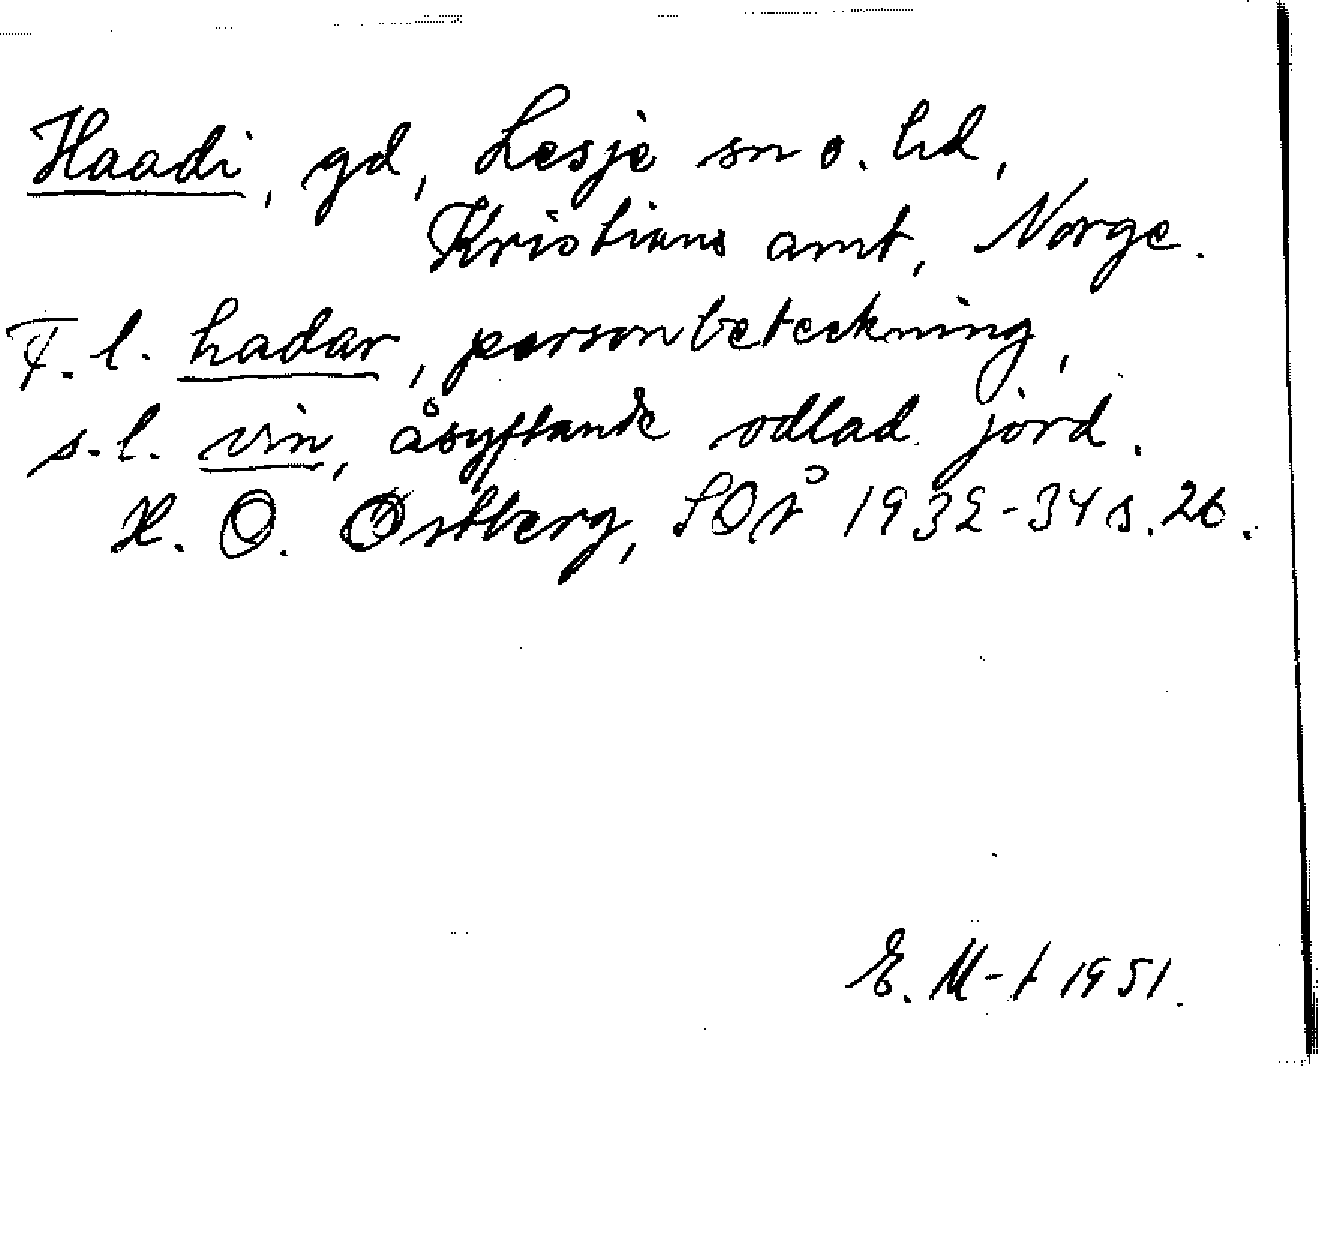 Haadi, gd, Lesje sn o. hd,
Kristians amt, Norge.
F. l. hadar, personbeteckning,
s. l. vin, åsyftande odlad jord.
H. O. Østberg, SOÅ 1932-34 s. 26.
E. M-t 1951.